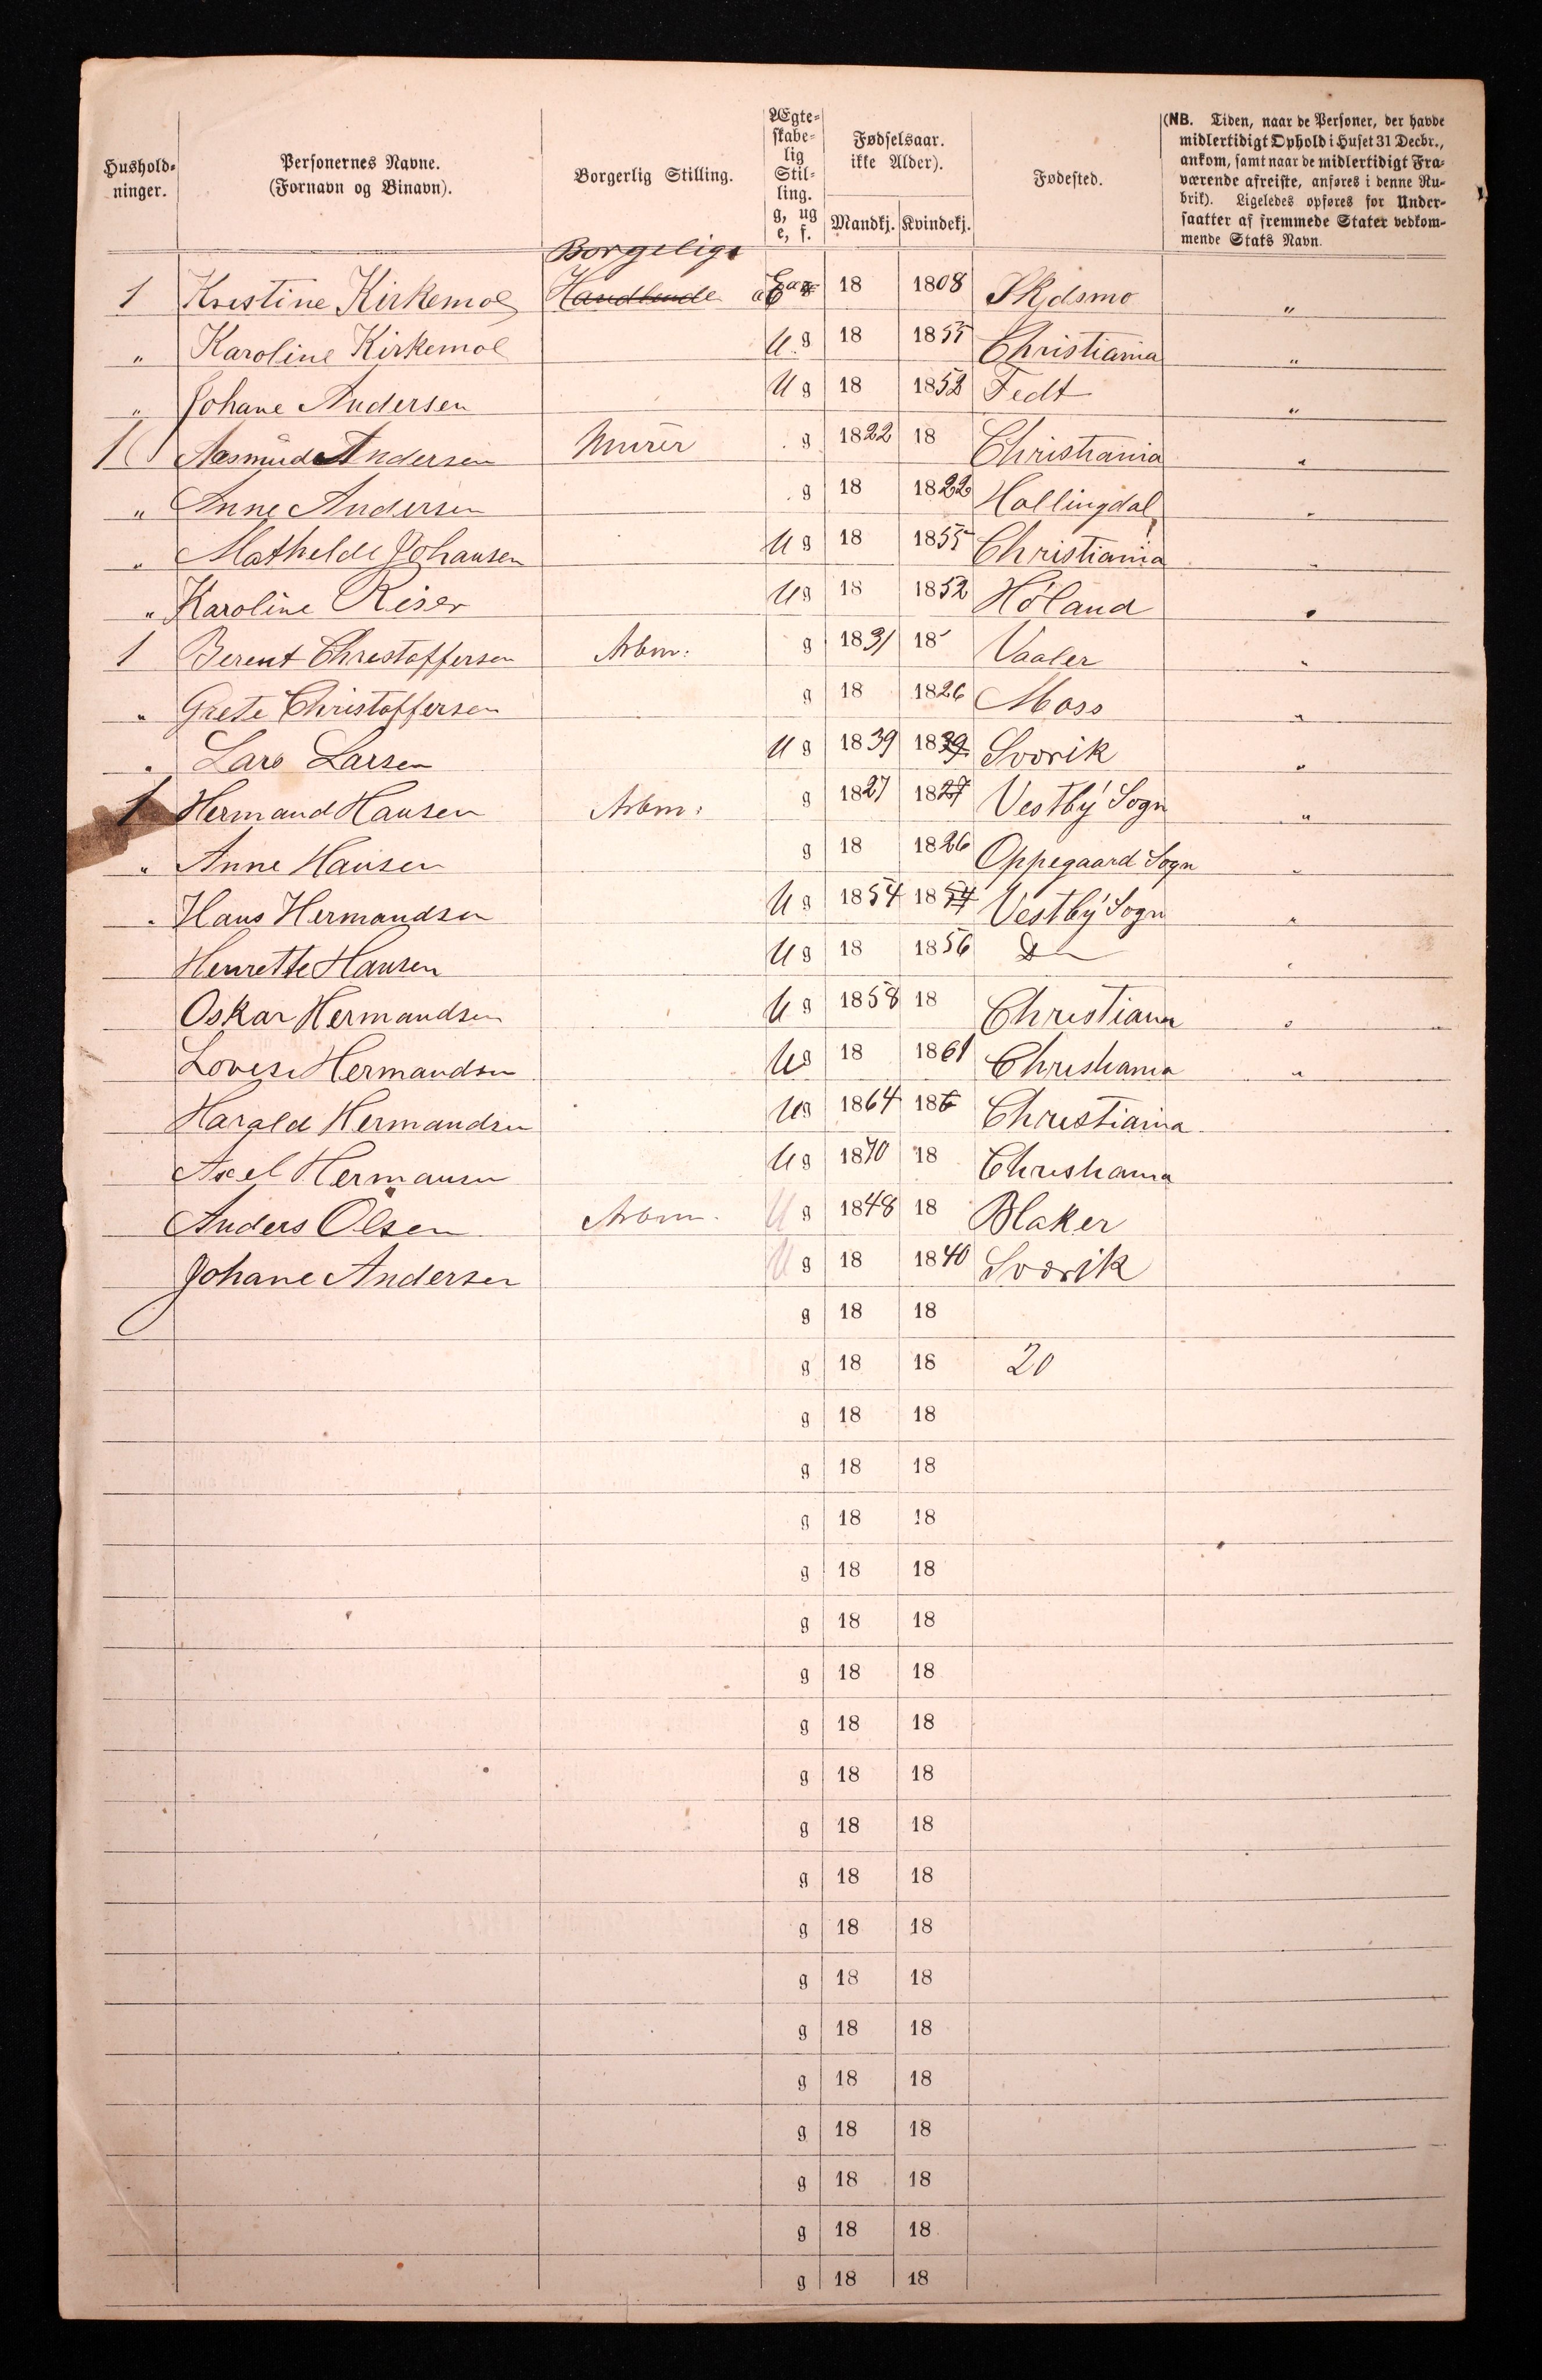 Hushold-
ninger.
Personernes Navne.
(Fornavn og Binavn).
Borgerlig Stilling.
Ægte-
skabe-
lig
Stil-
ling.
g, ug
e, f.
Fødselsaar.
ikke Alder).
Mandkj. Kvindekj.
Fødested.
(NB. Tiden, naar de Personer, der havde
midlertidigt Ophold i Huset 31 Decbr.,
ankom, samt naar de midlertidigt Fra-
værende afreiste, anføres i denne Ru-
brik). Ligeledes opføres for Under-
saatter af fremmede Stater vedkom-
mende Stats Navn.
Borgelige
1 Kristine Kirkemoe Handlende 18 1808 Skjdsmo "
" Karoline Kirkemoe U g 18 1855 Christiania "
" Johane Andersen U g 18 1852 Fedt "
1 Aasmüd Andersen Murer g 1822 18 Christiania "
" Anne Andersen g 18 1822 Hallingdal "
" Mathelde Johansen U g 18 1855 Christiania "
" Karoline Riser U g 18 1852 Höland "
1 Berent Christoffersen Arbm: g 1831 18 Vaaler "
" Grete Christoffersen g 18 1826 Moss "
" Lars Larsen U g 1839 1839 Sværik "
1 Hermand Hansen Arbm: g 1827 1827 Vestby Sogn "
" Anne Hansen g 18 1826 Oppegaard Sogn "
" Hans Hermandsen U g 1854 1854 Vestby Sogn "
Henrette Hansen U g 18 1856 Do "
Oskar Hermandsen U g 1858 18 Christiana "
Lovise Hermandsen U g 18 1861 Christiania "
Harald Hermandsen U g 1864 186 Christiania
Axel Hermansen U g 1870 18 Christiania
Anders Olsen Arbm. U g 1848 18 Blaker
Johane Andersen U g 18 1840 Sværik
g 18 18
g 18 18 20
g 18 18
g 18 18
g 18 18
g 18 18
g 18 18
g 18 18
g 18 18
g 18 18
g 18 18
g 18 18
g 18 18
g 18 18
g 18 18
g 18 18
g 18 18
g 18 18
g 18 18
g 18 18